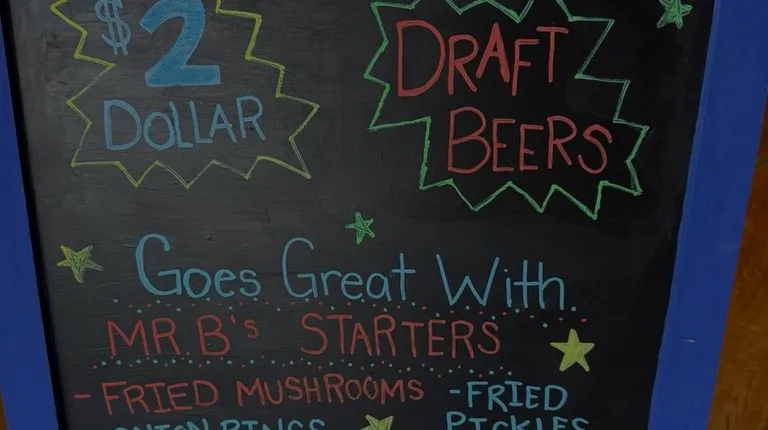 $2
DOLLAR
DRAFT
BEERS
Goes Great With
MR. B's STARTERS
- FRIED MUSHROOMS
- FRIED
PICKLES
ONION RINGS